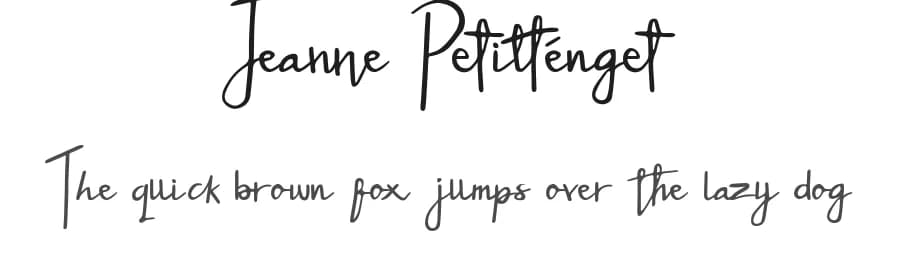 Jeanne Petitténget
The quick brown fox jumps over the lazy dog